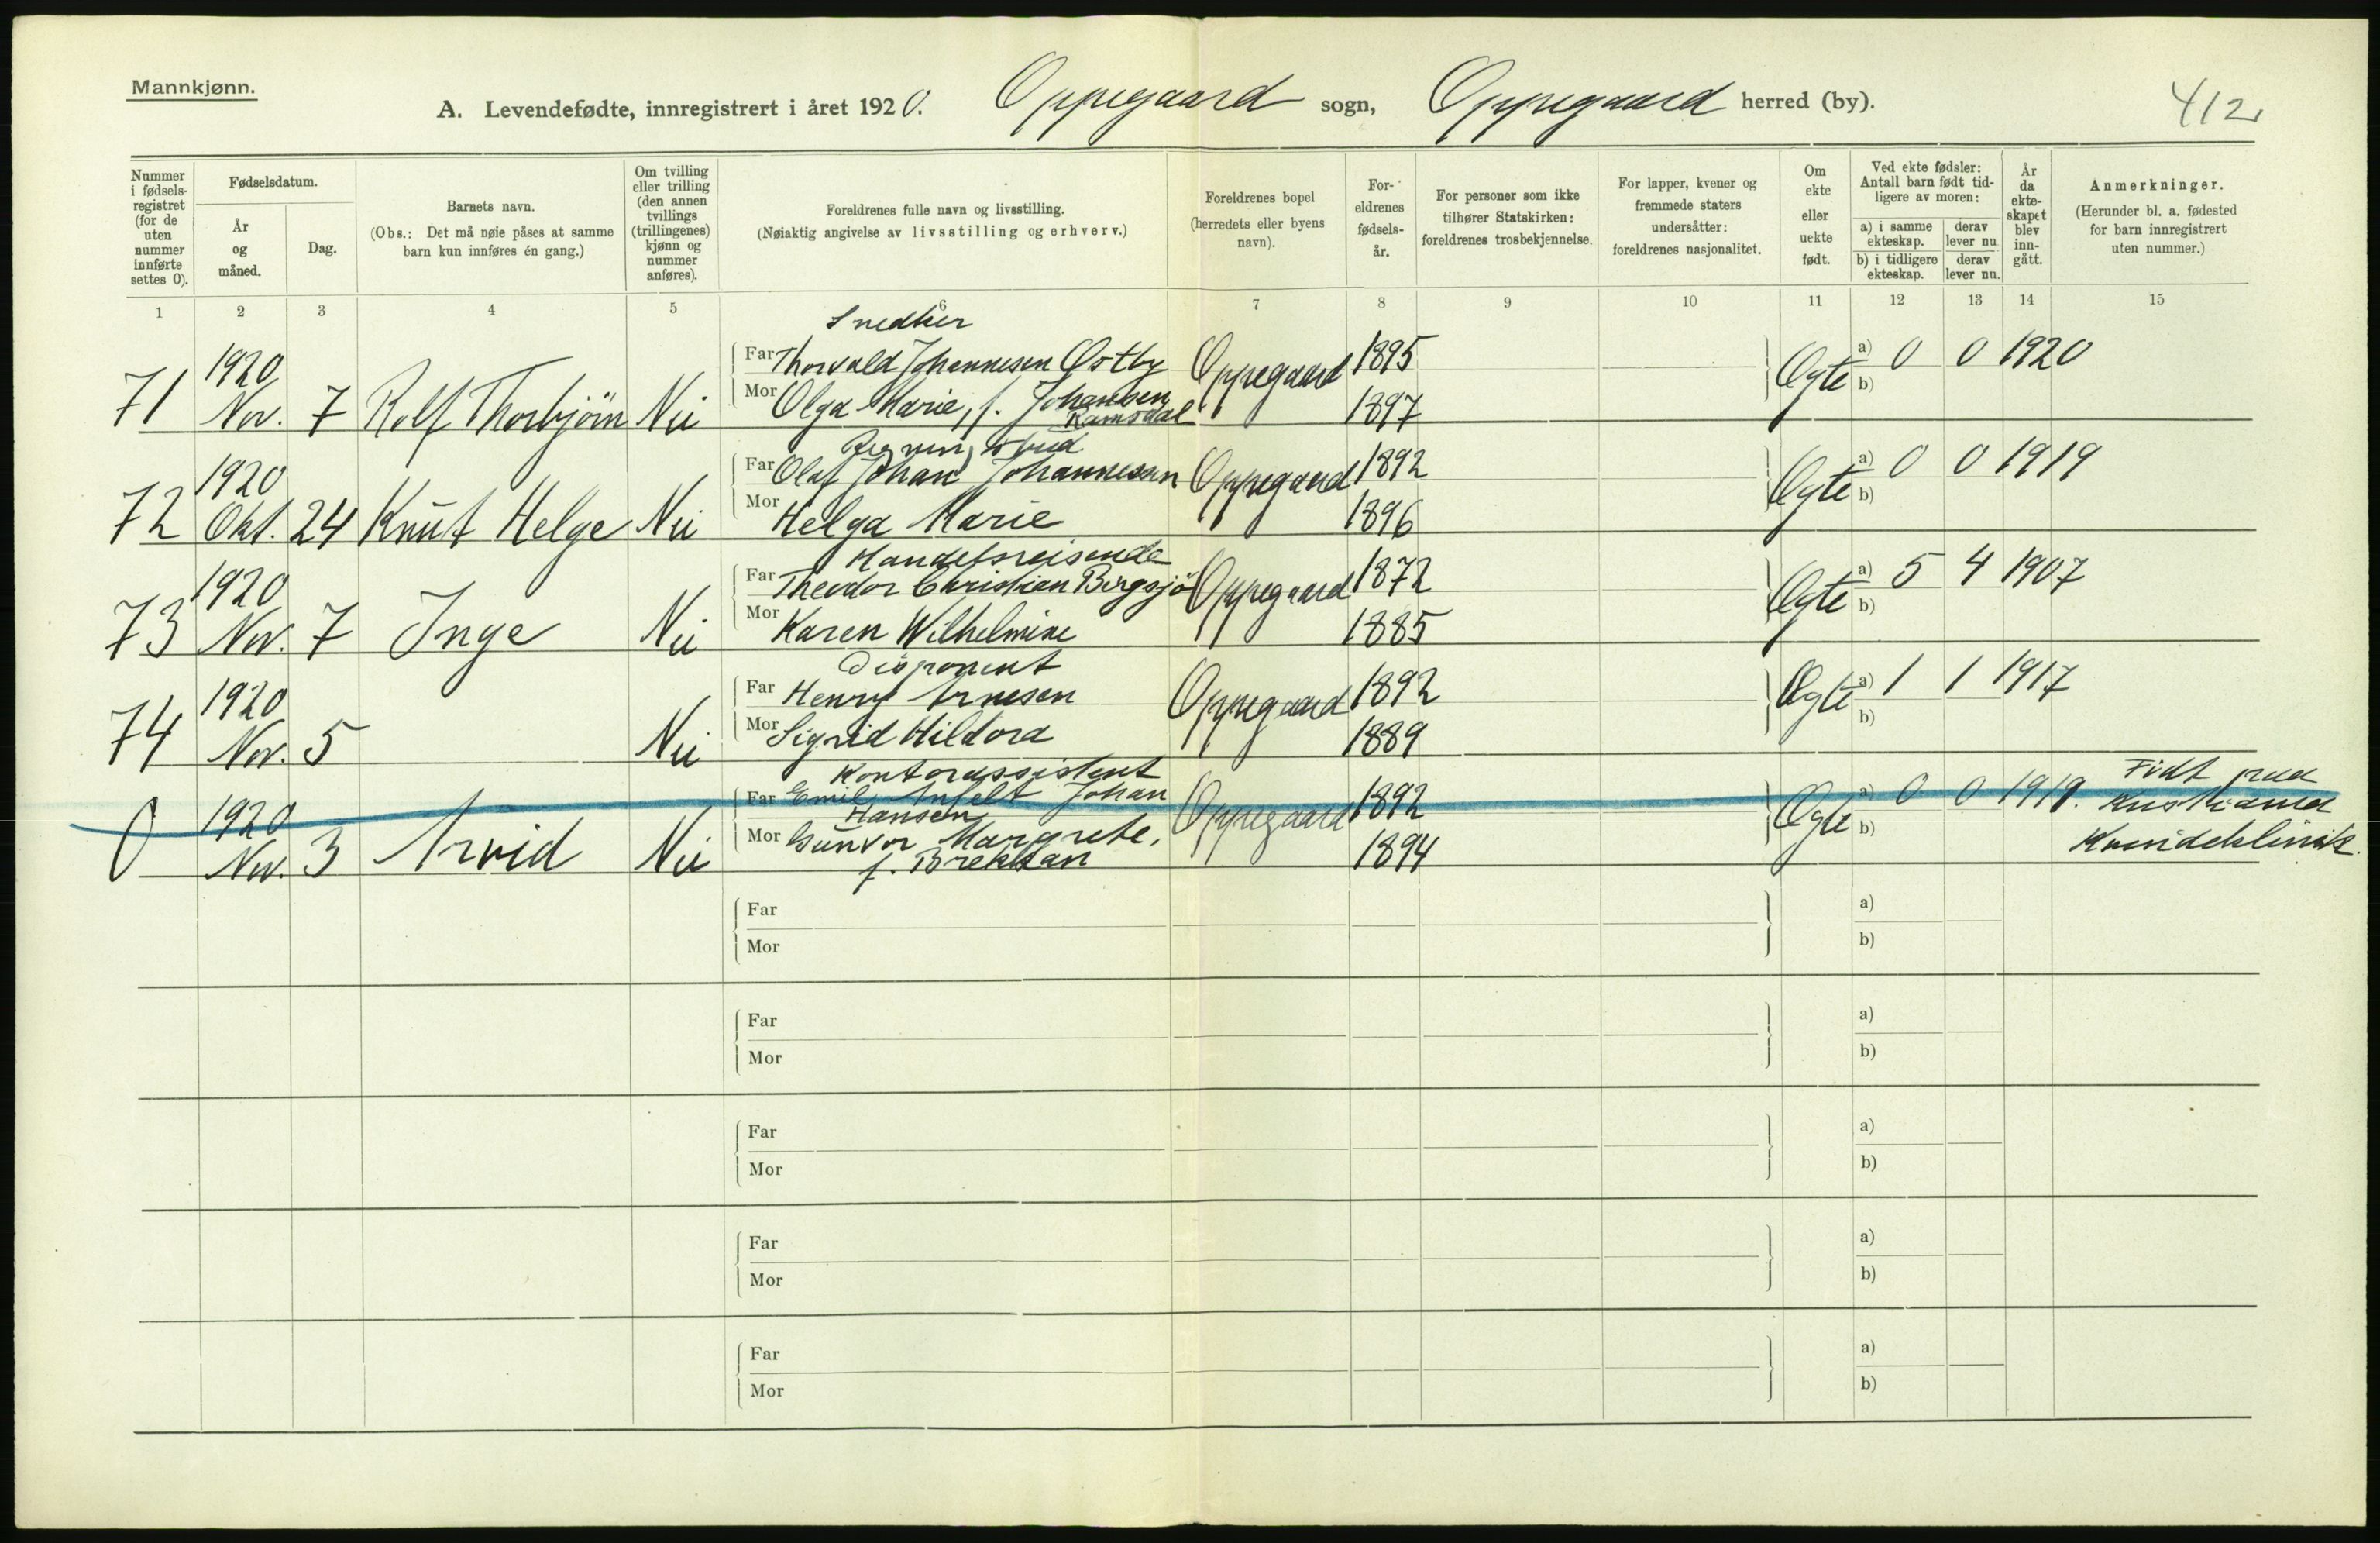 Mannkjønn.
A. Levendefødte, innregistrert i året 1920. Oppegaard sogn, Oppegaard herred (by).
412
Nummer i fødsels- registret (for de uten nummer innførte settes 0).
Fødselsdatum.
År og måned.
Dag.
Barnets navn.
(Obs.: Det må nøie påses at samme barn kun innføres én gang.)
Om tvilling eller trilling (den annen tvillings (trillingenes) kjønn og nummer anføres).
Foreldrenes fulle navn og livsstilling.
(Nøiaktig angivelse av livsstilling og erhverv.)
Foreldrenes bopel (herredets eller byens navn).
For- eldrenes fødsels- år.
For personer som ikke tilhører Statskirken: foreldrenes trosbekjennelse.
For lapper, kvener og fremmede staters undersåtter: foreldrenes nasjonalitet.
Om ekte eller uekte født.
Ved ekte fødsler: Antall barn født tid- ligere av moren:
a) i samme ekteskap. derav lever nu
b) i tidligere ekteskap. derav lever nu.
År da ekte- skapet blev inn- gått.
Anmerkninger.
(Herunder bl. a. fødested for barn innregistrert uten nummer.)
1 2 3 4 5 6 7 8 9 10 11 12 13 14 15
Snedker
1920 Far Thorvald Johannesen Østby Oppegaard 1895 Ægte a) 0 0 1920
71 Nov. 7 Rolf Thorbjörn Nei Mor Olga Marie, f. Johansen 1897 b)
Ramsdal
1920 Far Olaf Johan Johannessen Oppegaard 1892 Ægte a) 0 0 1919
72 Okt. 24 Knut Helge Nei Mor Helga Marie 1896 b)
Handelsreisende
1920 Far Theodor Christian Bergsjö Oppegaard 1872 Ægte a) 5 4 1907
73 Nov. 7 Inge Nei Mor Karen Wilhelmine 1885 b)
Disponent
1920 Far Henry Arnesen Oppegaard 1892 Ægte a) 1 1 1917
74 Nov. 5 Nei Mor Sigrid Hildora 1889 b)
Kontorassistent Födt paa
1920 Far Emil Johan Oppegaard 1892 Ægte a) 0 0 1919. Kristiania
Hansen
0 Nov. 3 Arvid Nei Mor Gunvor Margrete, 1894 b) Kvindeklinik.
f. Brekkan
Far a)
Mor b)
Far a)
Mor b)
Far a)
Mor b)
Far a)
Mor b)
Far a)
Mor b)